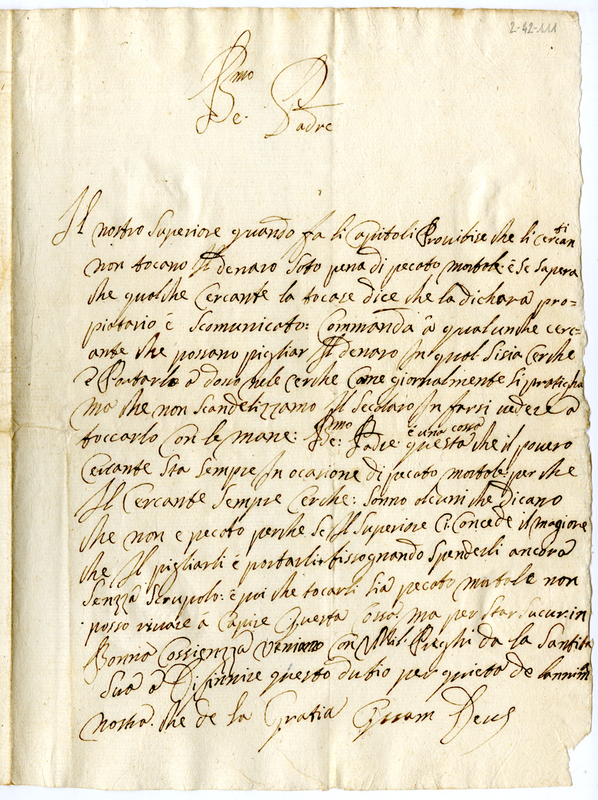 2-42-111
Bmo
Pe. Padre
Il nostro superiore quando fa li capitoli Prouibise che li cercanti
non tocano Il denaro soto pena di pecato mortale: e se sapera
che qualche Cercante la tocase dice che la dichara pro=
piatario e scomunicato: Commanda a qualunche cerc=
ante che possano pigliar Il denaro In qual sisia cerche
e Portarlo a doue tule cerche Come giornalmente si praticha
ma che non scandelizzamo Il secolaro In farsi uedere a
toccarlo con le mane: Bmo Pe: Padre e una cossa questa che il pouero
Cercante sta sempre In ocasione di pecato mortale per che
Il Cercante sempre Cerche: sonno alcuni che dicano
che non e pecato perche se Il superiore Ci Concede il magiore
che Il pigliarli e portarli bissognando spenderli ancora
senzza scrupolo: e poi che tocarli sia pecato mortale non
posso riuare a Capire Questa Cosa: ma per star sucur: in
Bonna Cossienzza ueniamo Con Mill: Preghi da la Santita
sua a Difinnire questo dubio per quieto de lannim
nostra. che de la Gratia Quam Deus